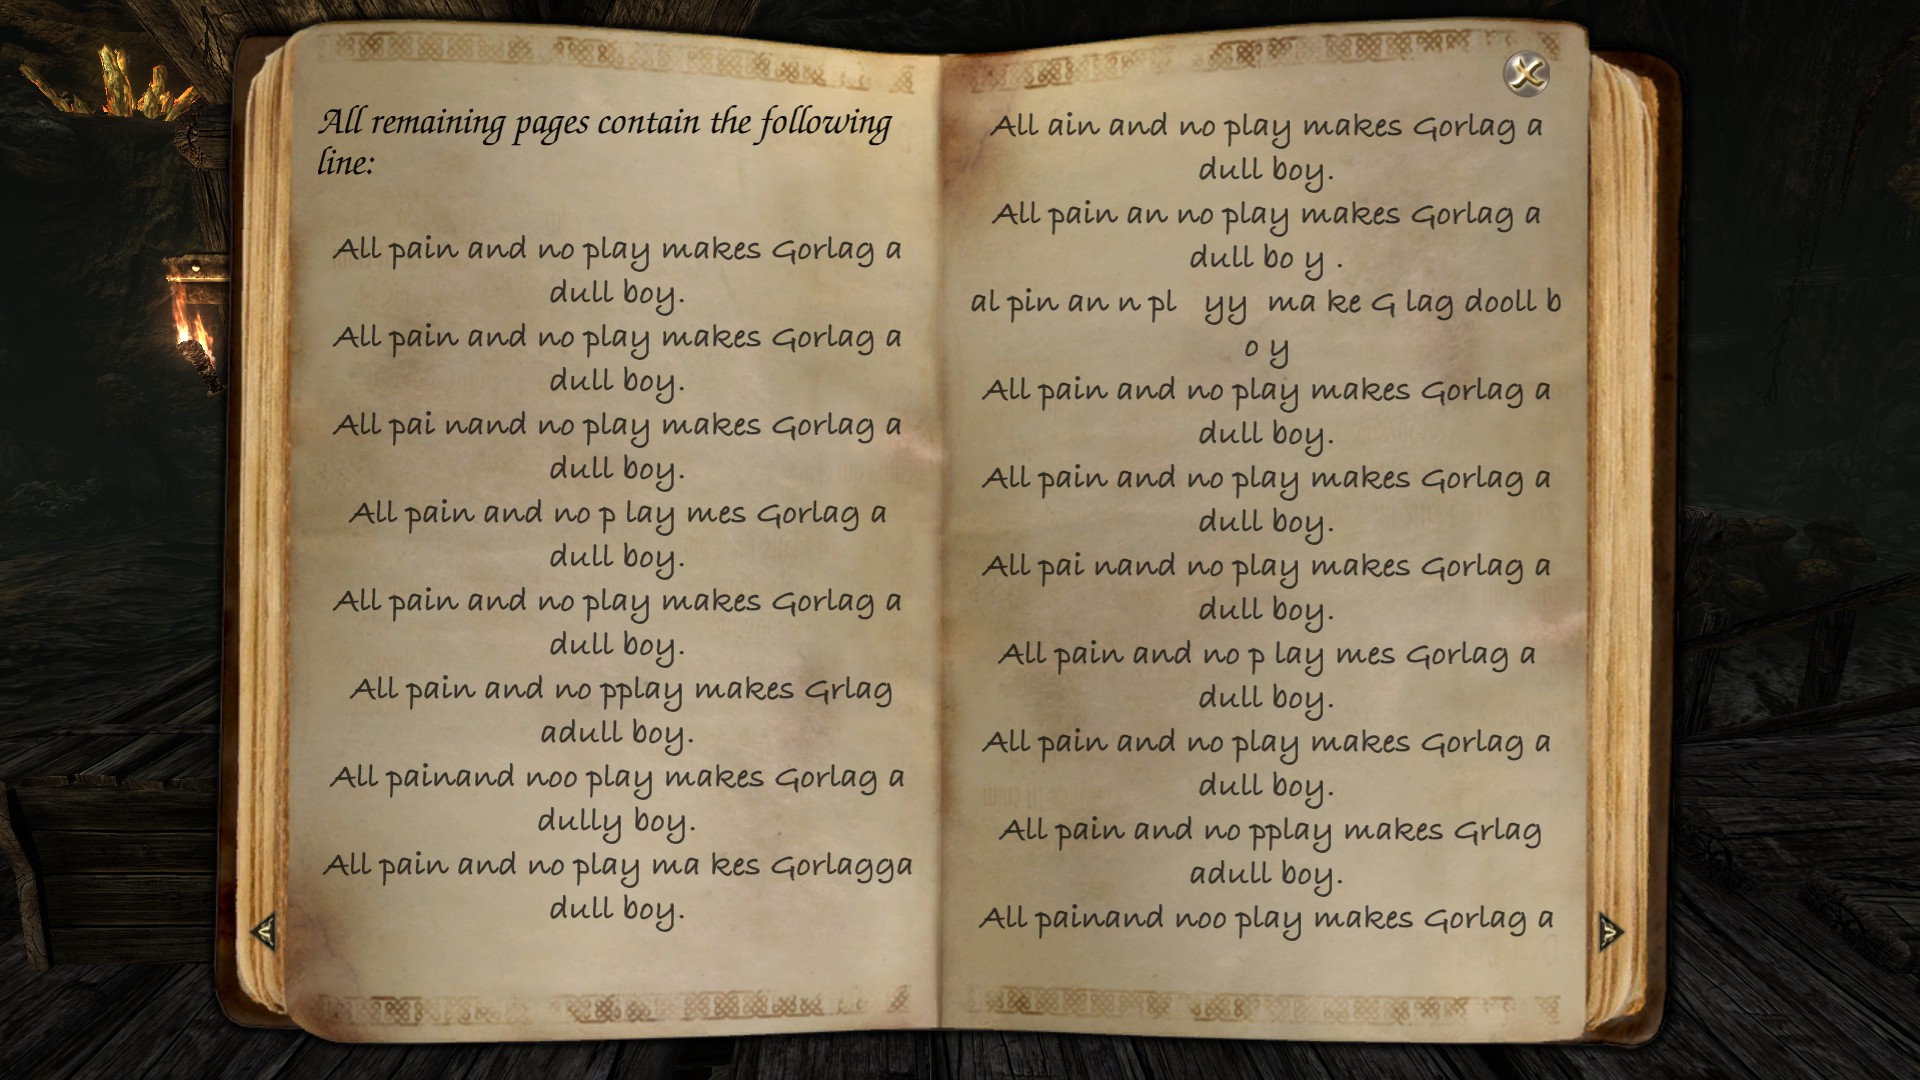 All remaining pages contain the following
line:
All pain and no play makes Gorlag a
dull boy.
All pain and no play makes Gorlag a
dull boy.
All pai nand no play makes Gorlag a
dull boy.
All pain and no p lay mes Gorlag a
dull boy.
All pain and no play makes Gorlag a
dull boy.
All pain and no pplay makes Grlag
adull boy.
All painand noo play makes Gorlag a
dully boy.
All pain and no play ma kes Gorlagga
dull boy.
All ain and no play makes Gorlag a
dull boy.
All pain an no play makes Gorlag a
dull bo y .
al pin an n pl   yy  ma ke G lag dooll b
o y
All pain and no play makes Gorlag a
dull boy.
All pain and no play makes Gorlag a
dull boy.
All pai nand no play makes Gorlag a
dull boy.
All pain and no p lay mes Gorlag a
dull boy.
All pain and no play makes Gorlag a
dull boy.
All pain and no pplay makes Grlag
adull boy.
All painand noo play makes Gorlag a